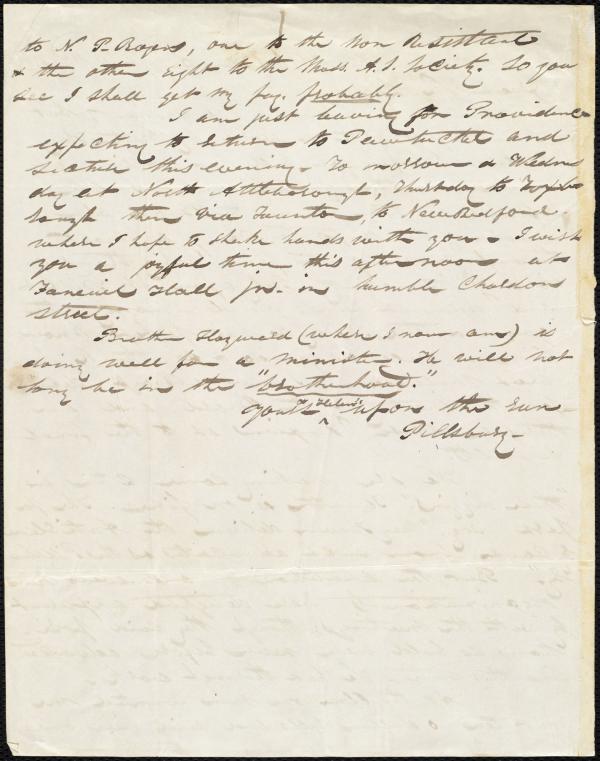 to N. P. Rogers, one to the Non Resistant
& the other eight to the Mass. A. S. Society. So you
see I shall get my pay. probably.
I am just leaving for Providence
expecting to return to Pawtucket and
this evening. To morrow & Wednes
day at North Attleborough, Thursday to Foxbo
rough then via Taunton, to New Bedford,
where I hope to shake hands with you. I wish
you a joyful time this afternoon at
Faneuil Hall jr. in humble Chardon
street.
Broth Hayward (where I now am) is
doing well for a minister. He will not
long be in the "brotherhood."
Yours & Helen's upon the run
Pillsbury-